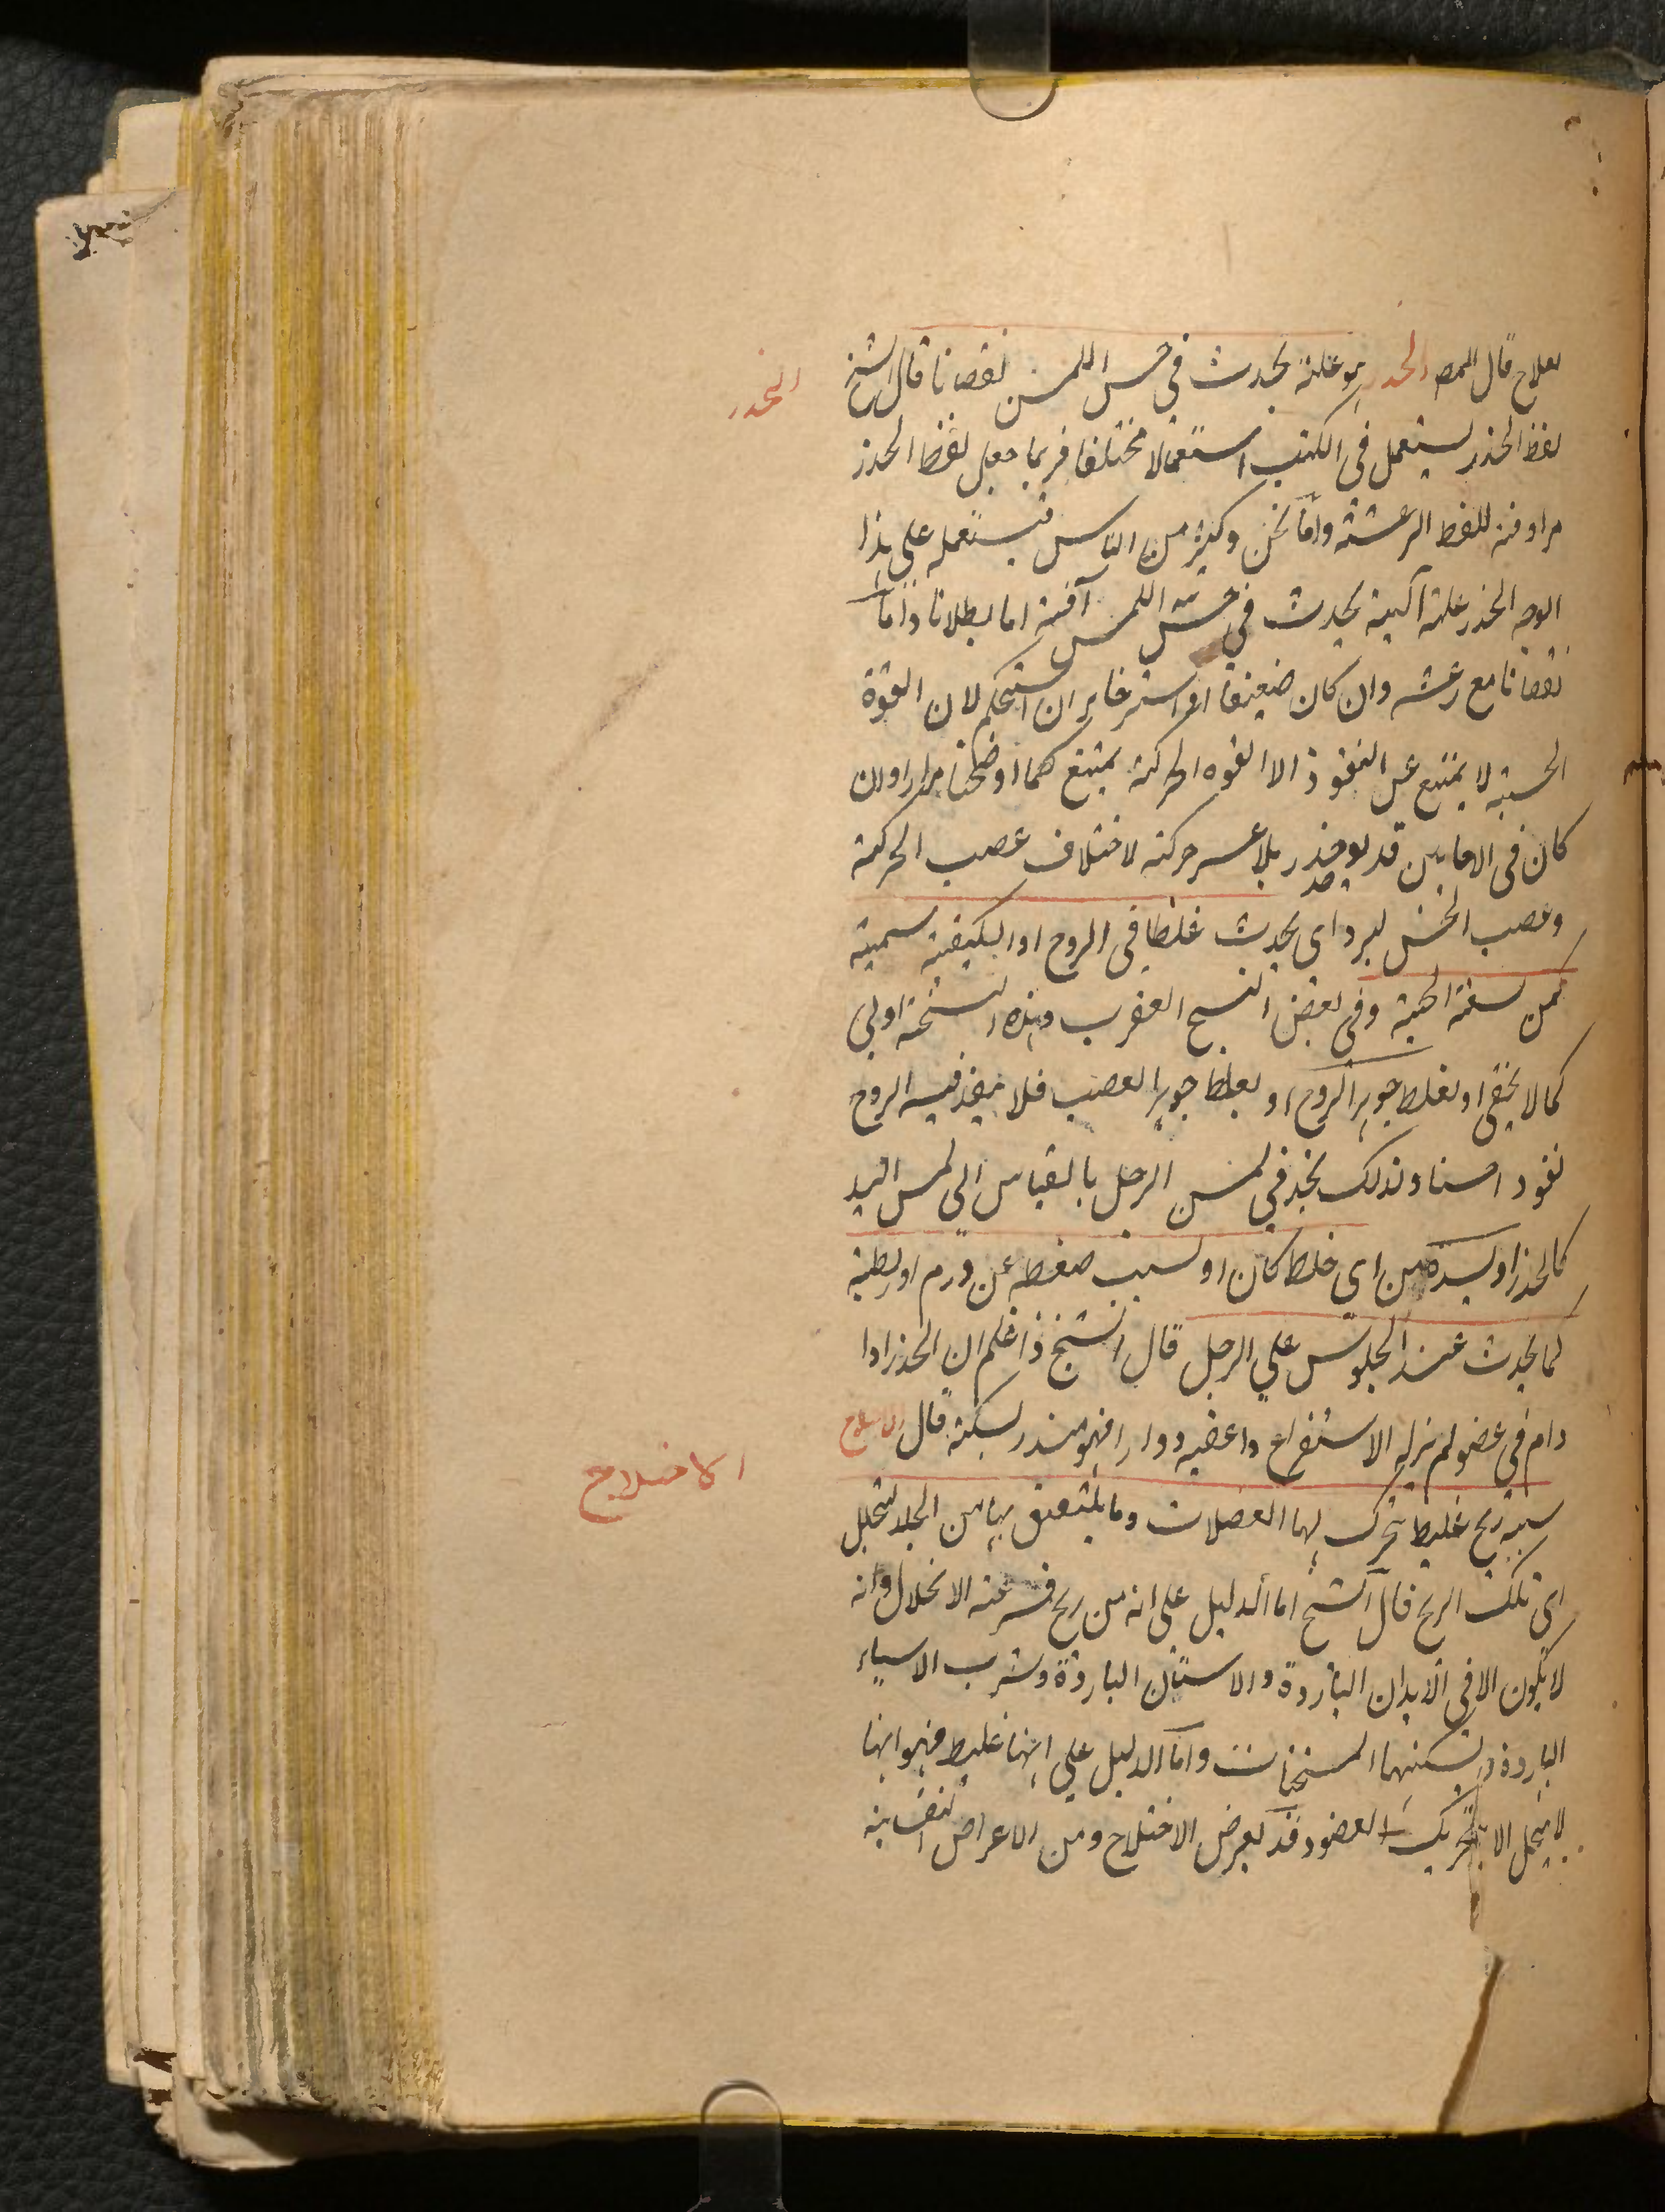 بعلاج قال المصـ الخدر هو علة يحدث في حس اللمس نقصانا قال الشيخ
الخدر
لفظ الخدر يستعمل في الكتب استعمالا مختلفا فربما جعل لفظ الخدر
مرادفة للفظ الرعشة واما نحن وكثير من الناس فيستعمله على هذا
الوجه الخدر علة آلية يحدث في حس اللمس آفة اما بطلانا واما
نقصانا مع رعشه وان كان ضعيفا او استرخاء ان استحكم لان القوة
الحسية لا يمتنع عن النفوذ الا القوه الحركة يمتنع كما اوضحنا مرارا وان
كان في الاحايين قد يوجد خدر بلا عسر حركة لاختلاف عصب الحركة
وعصب الحس لبرد اى يحدث غلظا في الروح او الكيفية سمية
كمن لسعة الحية وفي بعض النسخ العقرب وهذه النسخة اولى
كما لا يخفى او لغلظ جوهر الروح او لغلظ جوهر العصب فلا ينفذ فيه الروح
نفوذ احسنا ولذلك نجد في لمس الرجل بالقياس الى لمس اليد
كالخدر او لسدة من اي خلط كان او لسبب ضغط عن ورم او ربطة
كما يحدث عند الجلوس على الرجل قال الشيخ واعلم ان الخدر اذا
دام في عضو لم يزله الاستفراغ واعقبه دوار افهو منذر بسكتة قال الاختلاج
الاختلاج
سببه ريح غليظ يتحرك لها العضلات وما يلتصق بها من الجلد لتحلل
اى تلك الريح قال الشيخ اما الدليل على انه من ريح فسرعة الانحلال وانه
لا يكون الا في الابدان الباردة والاسنان الباردة وشرب الاشياء
الباردة ويسكنها المسخنات واما الدليل على انها غليظ فهو انها
لا ينحل الا بتحريك العضو وقد يعرض الاختلاج ومن الاعراض النفسانية